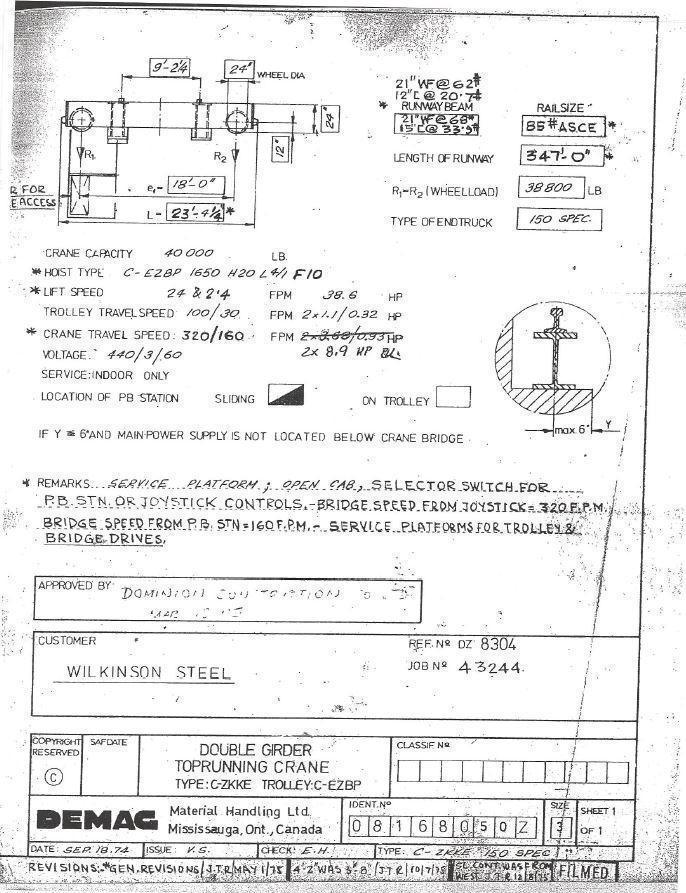 9'-2¼
24"
WHEEL DIA
21" WF @ 62#
12"[ @ 20·7#
* RUNWAY BEAM
21" WF @ 68#
15"[ @ 33·9#
RAILSIZE
85# ASCE *
24"
12"
LENGTH OF RUNWAY
347'-0" *
R1
R2
R FOR
E ACCESS
e1= 18'-0"
L= 23'-4¼" *
R1=R2 (WHEELLOAD)
38800 LB
TYPE OF ENDTRUCK
150 SPEC.
CRANE CAPACITY 40 000 LB.
* HOIST TYPE C-EZBP 1650 H20 L4/1 F10
* LIFT SPEED 24 & 2'4 FPM 38.6 HP
TROLLEY TRAVELSPEED 100/30 FPM 2x1.1/0.32 HP
* CRANE TRAVEL SPEED: 320/160 FPM 2x3.68/0.93 HP
VOLTAGE: 440/3/60 2x 8.9 HP
SERVICE: INDOOR ONLY
LOCATION OF PB STATION SLIDING ON TROLLEY
max. 6" Y
IF Y ≅ 6" AND MAIN-POWER SUPPLY IS NOT LOCATED BELOW CRANE BRIDGE
* REMARKS SERVICE PLATFORM; OPEN CAB, SELECTOR SWITCH FOR
P.B. STN. OR JOYSTICK CONTROLS.-BRIDGE SPEED FROM JOYSTICK=320 F.P.M.
BRIDGE SPEED FROM P.B. STN=160 F.P.M.- SERVICE PLATFORMS FOR TROLLEY &
BRIDGE DRIVES.
APPROVED BY: DOMINION
CUSTOMER
REF. Nº DZ 8304
WILKINSON STEEL
JOB Nº 43244
COPYRIGHT
RESERVED
©
SAFDATE
DOUBLE GIRDER
TOPRUNNING CRANE
TYPE: C-ZKKE TROLLEY: C-EZBP
CLASSIF Nº
DEMAG
Material Handling Ltd.
Mississauga, Ont., Canada
IDENT. Nº
0 8 1 6 8 0 5 0 Z
SIZE
3
SHEET 1
OF 1
DATE: SEP. 18.74 ISSUE: V.S. CHECK: E.H. TYPE: C-ZKKE 150 SPEC
REVISIONS: *GEN. REVISIONS/J.T.R MAY 1/75 J.T.R 10/7/75 CONT. WAS FROM
WEST J.T.R 12/8/75
FILMED